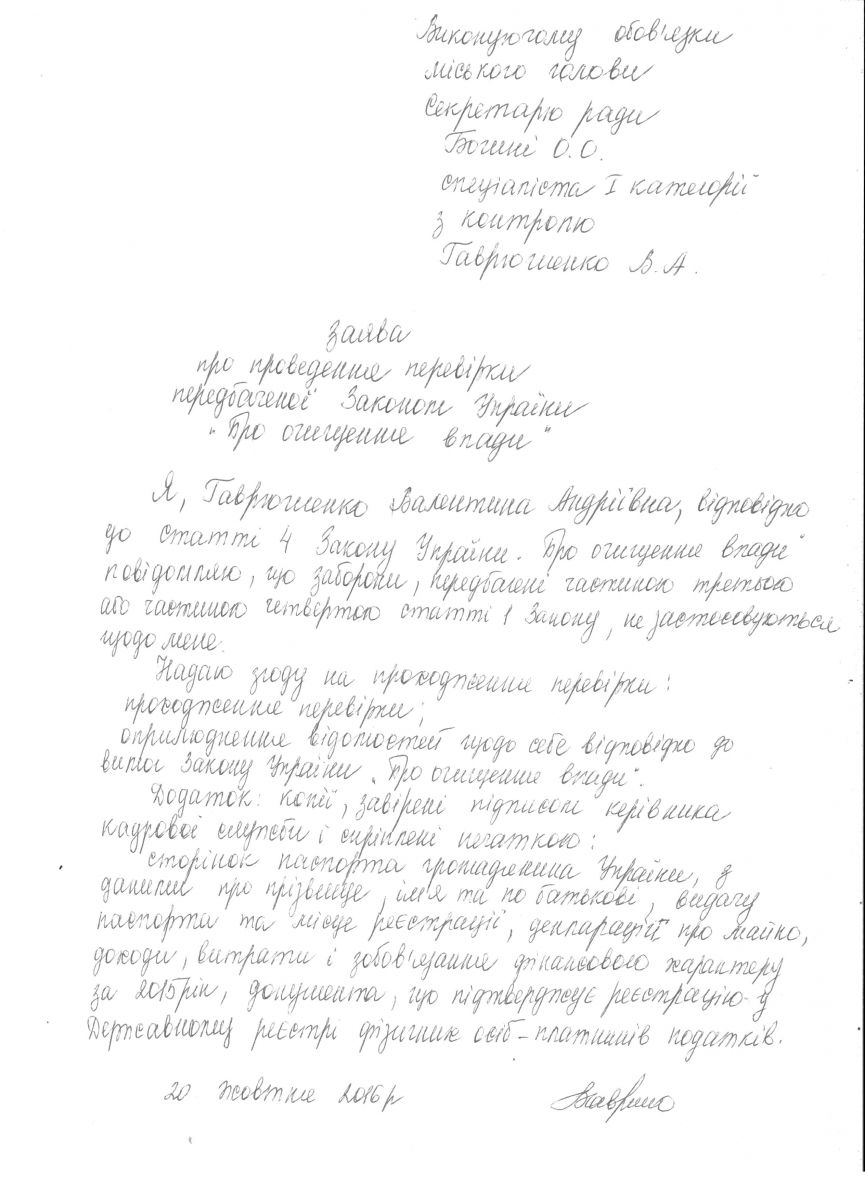 Виконуючому обов'язки
міського голови
Секретарю ради
Богині О.О.
спеціаліста І категорії
з контролю
Гаврюшенко В.А.
заява
про проведення перевірки
передбаченої Законом України
"Про очищення влади"
Я, Гаврюшенко Валентина Андріївна, відповідно
до статті 4 Закону України "Про очищення влади"
повідомляю, що заборони, передбачені частиною третьою
або частиною четвертою статті 1 Закону, не застосовуються
щодо мене.
Надаю згоду на проходження перевірки:
проходження перевірки;
оприлюднення відомостей щодо себе відповідно до
вимог Закону України "Про очищення влади".
Додаток: копії, завірені підписом керівника
кадрової служби і скріплені печаткою:
сторінок паспорта громадянина України, з
даними про прізвище, ім'я та по батькові, видачу
паспорта та місце реєстрації, декларації про майно,
доходи, витрати і зобов'язання фінансового характеру
за 2015 рік, документа, що підтверджує реєстрацію у
Державному реєстрі фізичних осіб-платників податків.
20 жовтня 2016 р